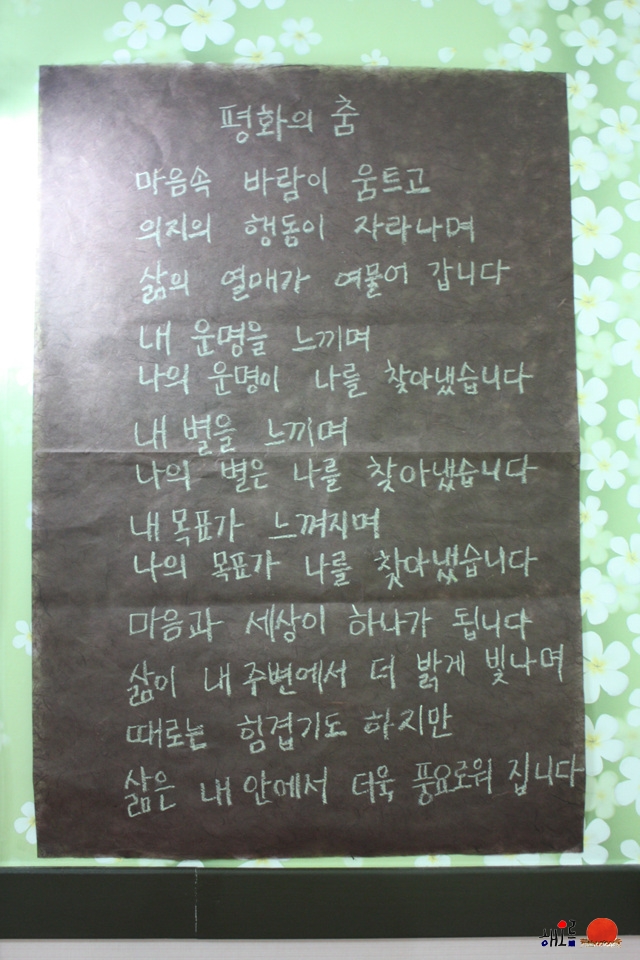 평화의 춤
마음속 바람이 움트고
의지의 행동이 자라나며
삶의 열매가 여물어 갑니다
내 운명을 느끼며
나의 운명이 나를 찾아냈습니다
내 별을 느끼며
나의 별은 나를 찾아냈습니다
내 목표가 느껴지며
나의 목표가 나를 찾아냈습니다
마음과 세상이 하나가 됩니다
삶이 내 주변에서 더 밝게 빛나며
때로는 힘겹기도 하지만
삶은 내 안에서 더욱 풍요로워 집니다
해오름